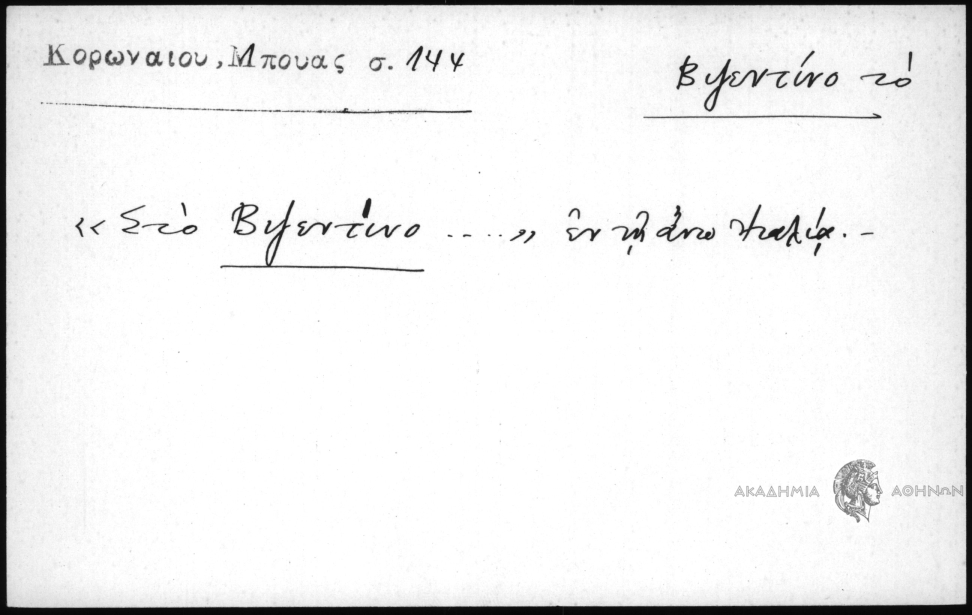 Κορωναιου, Μπουας σ. 144
Βιζεντίνο τὸ
«Στὸ Βιζεντίνο ....» ἐν τῇ ἄνω Ἰταλίᾳ. –
ΑΚΑΔΗΜΙΑ ΑΘΗΝΩΝ